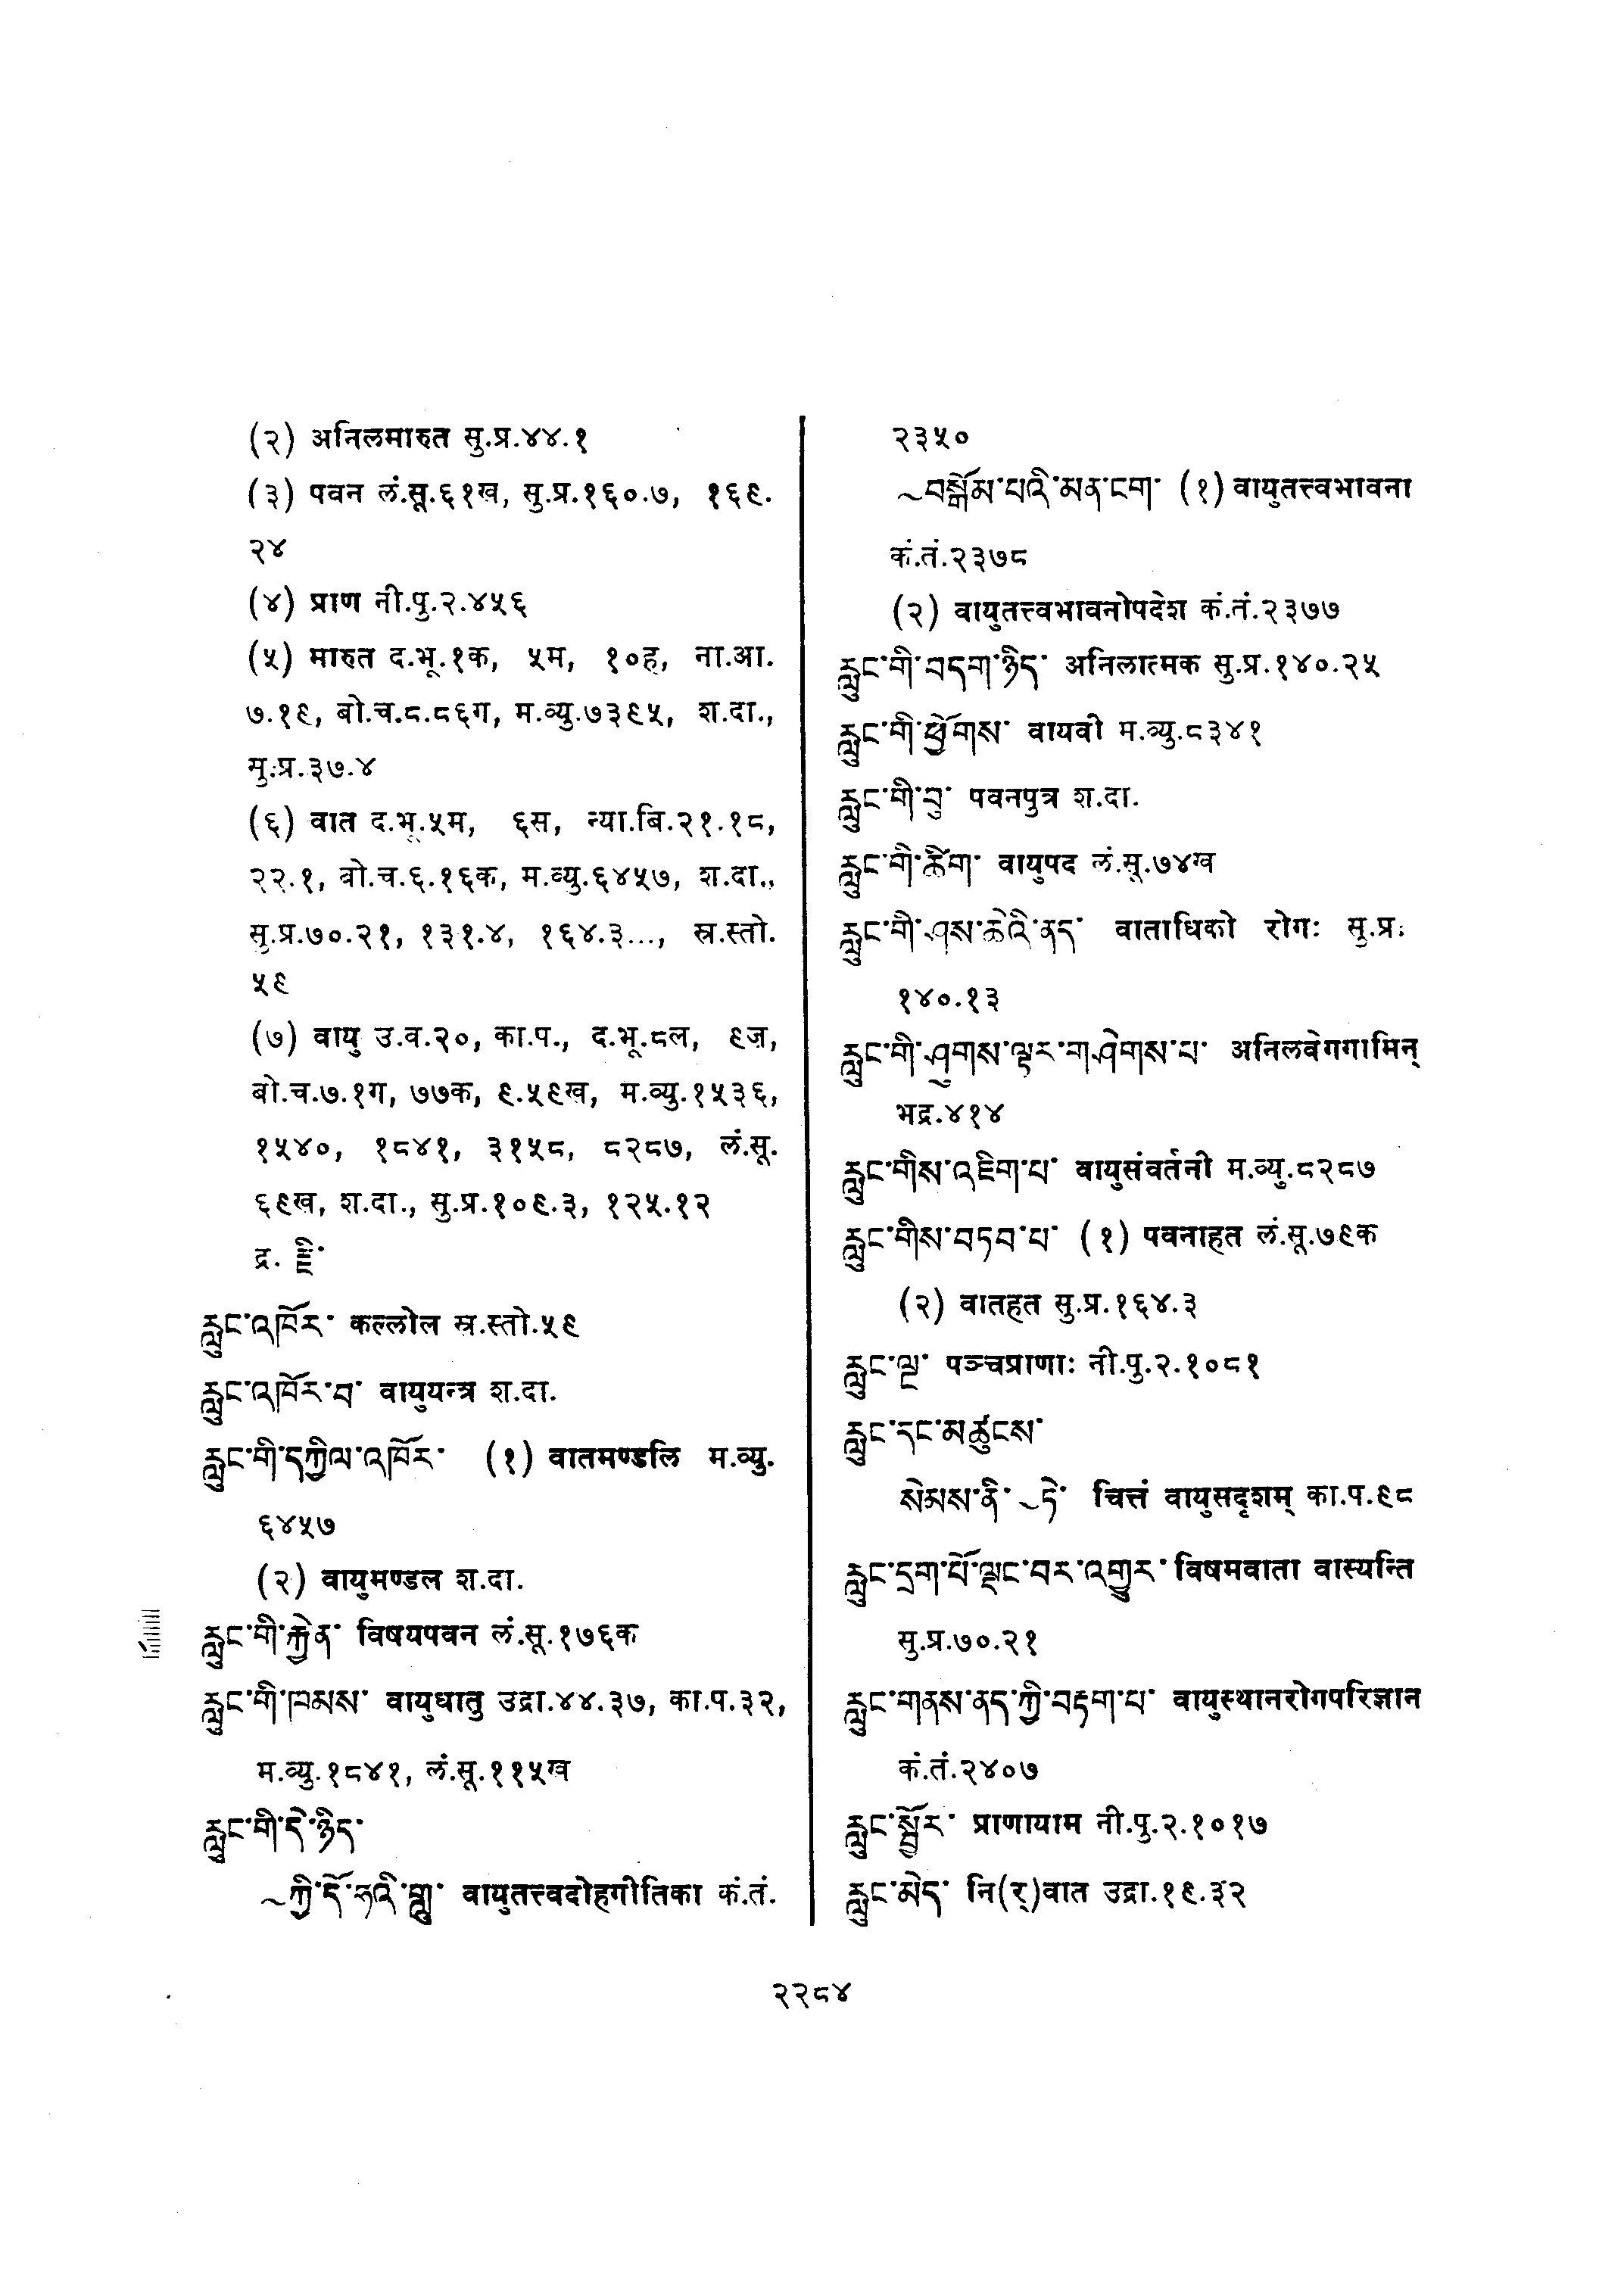 (२) अनिलमारुत सु.प्र.४४.१
(३) पवन लं.सू.६१ख, सु.प्र.१६०.७, १६९.
२४
(४) प्राण नी.पु.२.४५६
(५) मारुत द.भू.१क, ५म, १०ह, ना.आ.
७.१९, बो.च.८.८६ग, म.व्यु.७३९५, श.दा.,
सु.प्र.३७.४
(६) वात द.भू.५म, ६स, न्या.बि.२१.१८,
२२.१, बो.च.६.१६क, म.व्यु.६४५७, श.दा.,
सु.प्र.७०.२१, १३१.४, १६४.३..., स्र.स्तो.
५९
(७) वायु उ.व.२०, का.प., द.भू.८ल, ९ज़,
बो.च.७.१ग, ७७क, ९.५९ख, म.व्यु.१५३६,
१५४०, १८४१, ३१५८, ८२८७, लं.सू.
६९ख, श.दा., सु.प्र.१०९.३, १२५.१२
द्र. རྫི་
རླུང་འཁོར་ कल्लोल स्र.स्तो.५९
རླུང་འཁོར་བ་ वायुयन्त्र श.दा.
རླུང་གི་དཀྱིལ་འཁོར་ (१) वातमण्डलि म.व्यु.
६४५७
(२) वायुमण्डल श.दा.
རླུང་གི་རྐྱེན་ विषयपवन लं.सू.१७६क
རླུང་གི་ཁམས་ वायुधातु उद्रा.४४.३७, का.प.३२,
म.व्यु.१८४१, लं.सू.११५ख
རླུང་གི་དེ་ཉིད་
~ཀྱི་དོ་ཧའི་གླུ་ वायुतत्त्वदोहगीतिका कं.तं.
२३५०
~བསྒོམ་པའི་མན་ངག་ (१) वायुतत्त्वभावना
कं.तं.२३७८
(२) वायुतत्त्वभावनोपदेश कं.तं.२३७७
རླུང་གི་བདག་ཉིད་ अनिलात्मक सु.प्र.१४०.२५
རླུང་གི་ཕྱོགས་ वायवी म.व्यु.८३४१
རླུང་གི་བུ་ पवनपुत्र श.दा.
རླུང་གི་ཚིག་ वायुपद लं.सू.७४ख
རླུང་གི་ཤས་ཆེའི་ནད་ वाताधिको रोगः सु.प्र.
१४०.१३
རླུང་གི་ཤུགས་ལྟར་གཤེགས་པ་ अनिलवेगगामिन्
भद्र.४१४
རླུང་གིས་འཇིག་པ་ वायुसंवर्तनी म.व्यु.८२८७
རླུང་གིས་བཏབ་པ་ (१) पवनाहत लं.सू.७९क
(२) वातहत सु.प्र.१६४.३
རླུང་ལྔ་ पञ्चप्राणाः नी.पु.२.१०८१
རླུང་དང་མཚུངས་
སེམས་ནི་ ~ཏེ་ चित्तं वायुसदृशम् का.प.९८
རླུང་དྲག་པོ་ལྡང་བར་འགྱུར་ विषमवाता वास्यन्ति
सु.प्र.७०.२१
རླུང་གནས་ནད་ཀྱི་བརྟག་པ་ वायुस्थानरोगपरिज्ञान
कं.तं.२४०७
རླུང་སྦྱོར་ प्राणायाम नी.पु.२.१०१७
རླུང་མེད་ नि(र्)वात उद्रा.१९.३२
२२८४